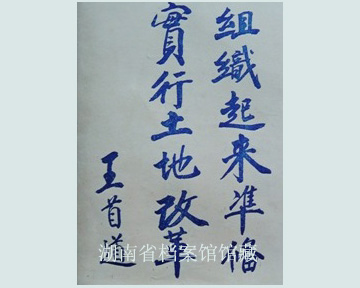 組織起来準備
實行土地改革
王首道
湖南省档案馆馆藏